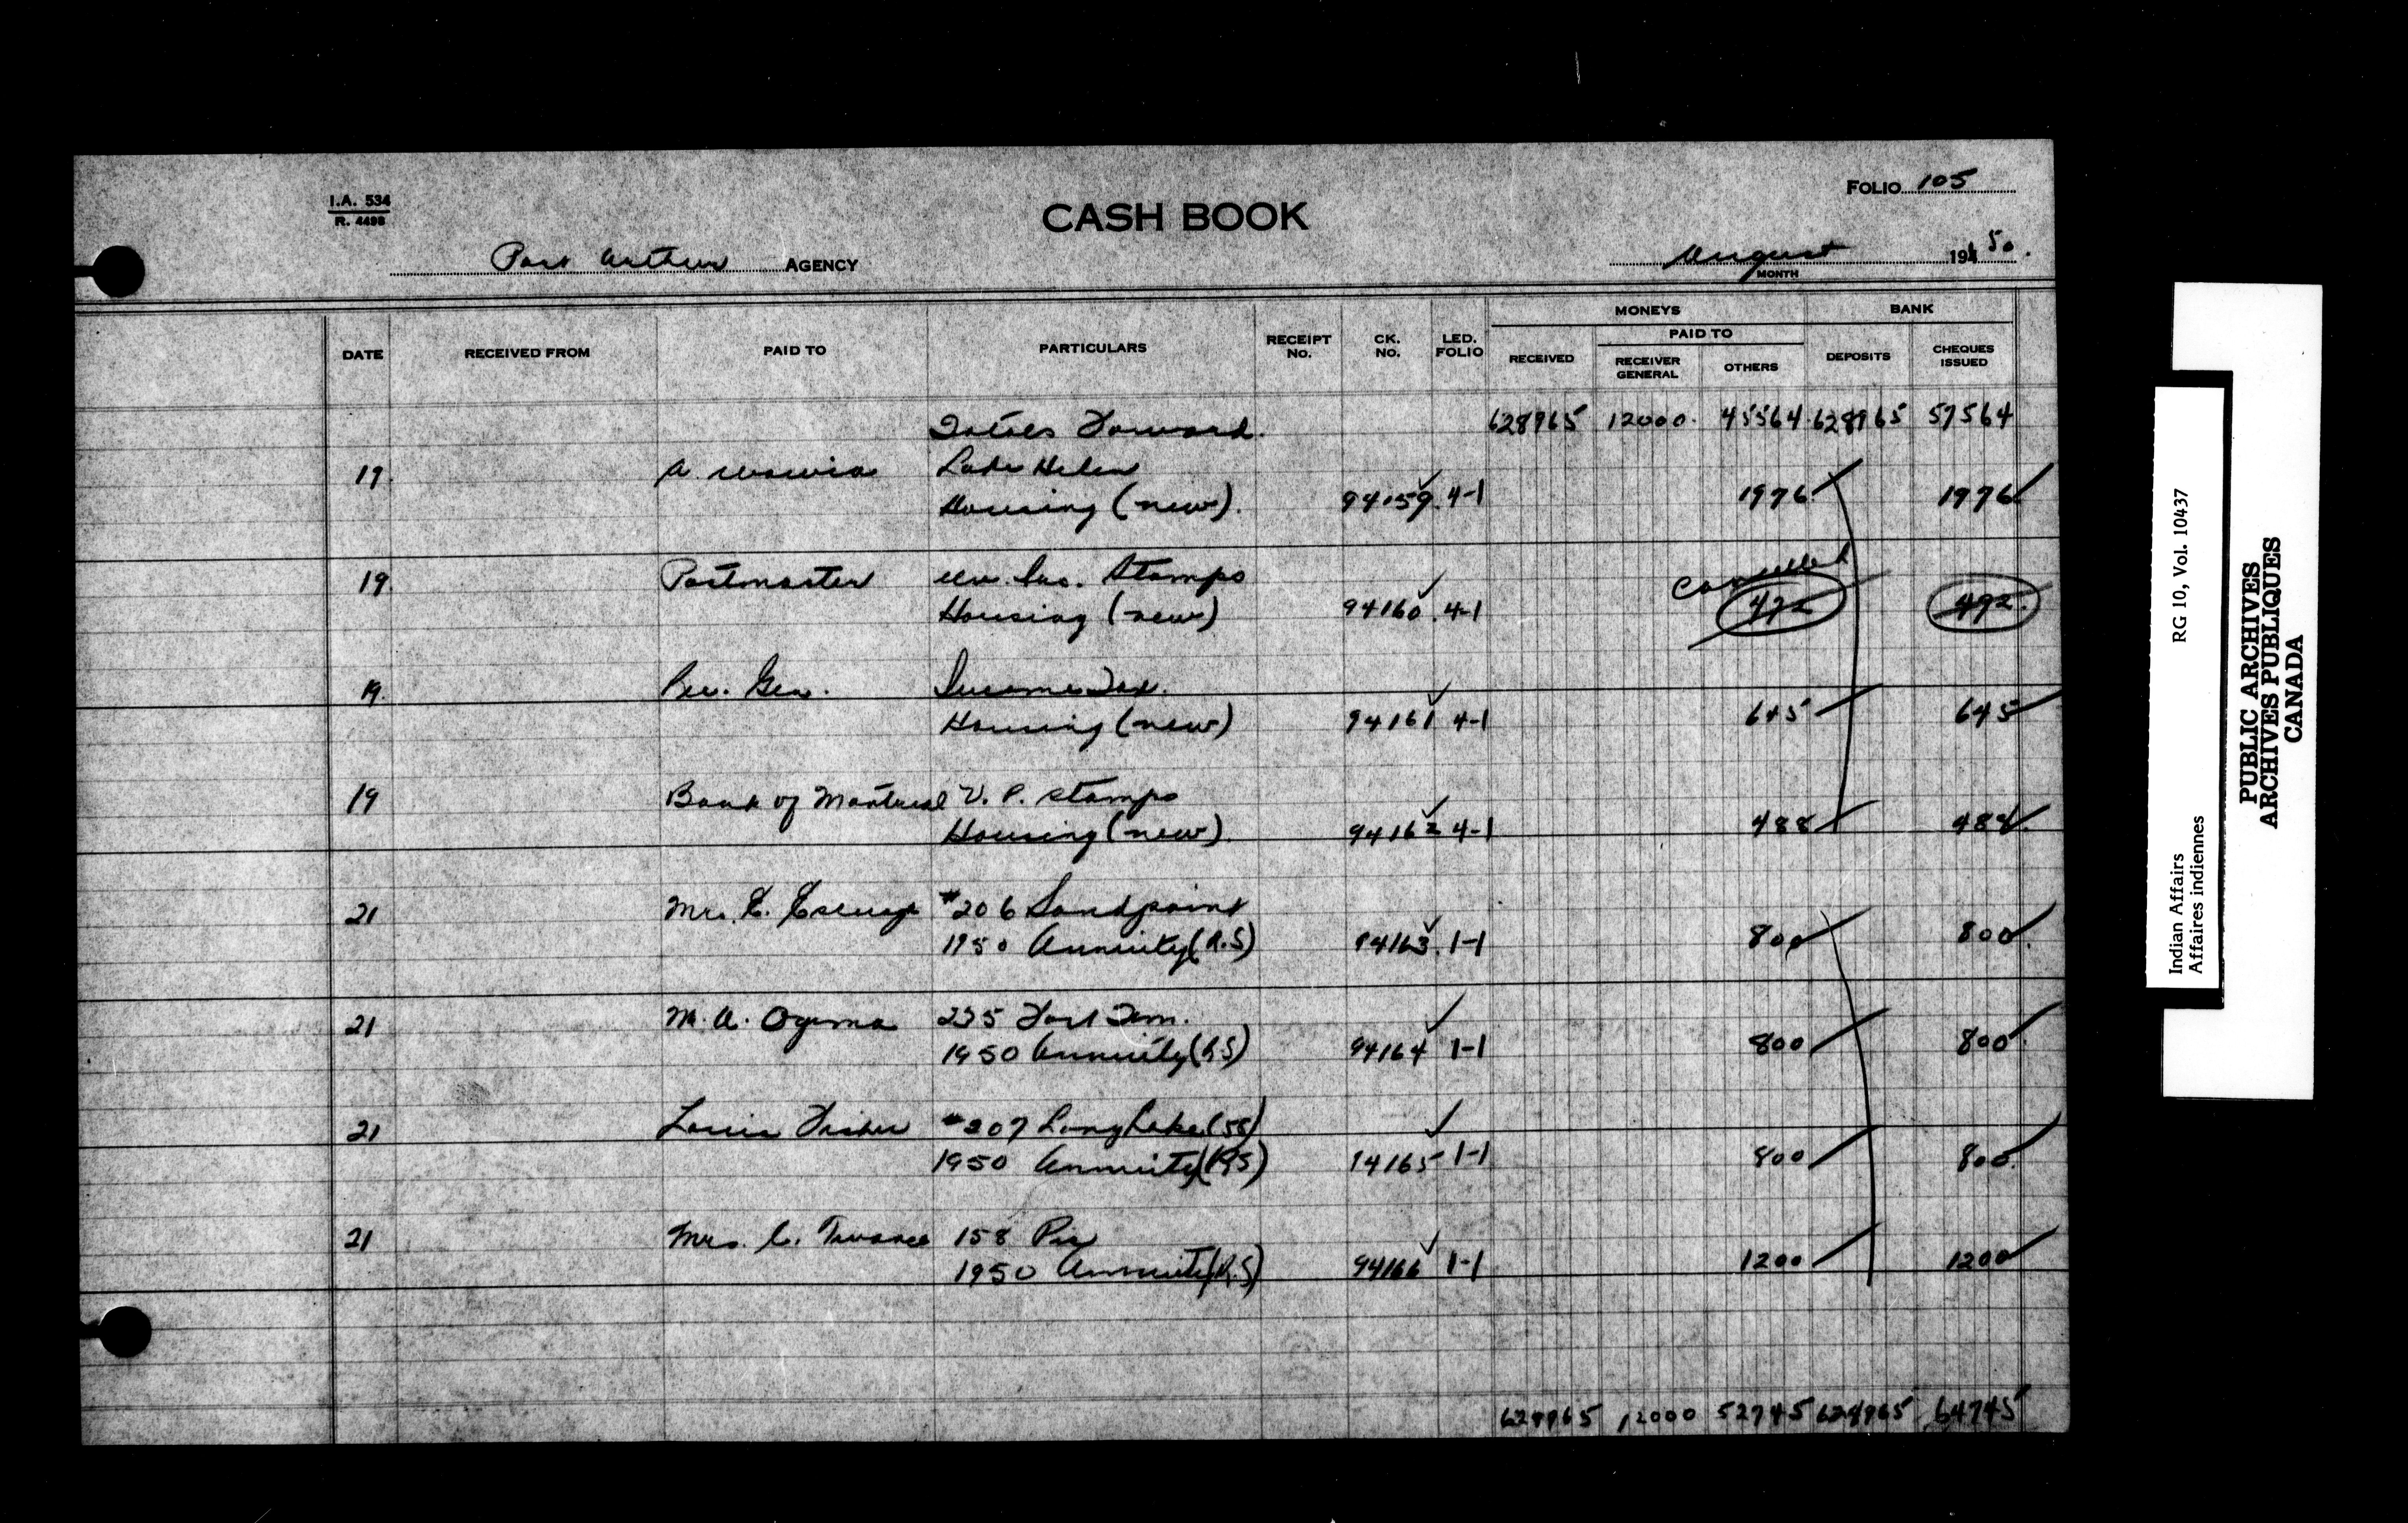 I.A. 534
R. 4498
CASH BOOK
FOLIO 105
Port Arthur AGENCY
August 194 50.
MONTH
MONEYS BANK
PAID TO
DATE RECEIVED FROM PAID TO PARTICULARS RECEIPT NO. CK. NO. LED. FOLIO RECEIVED RECEIVER GENERAL OTHERS DEPOSITS CHEQUES ISSUED
Totals Forward. 628965 12000. 45564 628965 57564
19. A. Lake Helen
Housing (new). 94159. 4-1 1976 1976
19. Postmaster Un. Ins. Stamps cancelled
Housing (new) 94160. 4-1 492 492.
19. Rec. Gen. Income Tax.
Housing (new) 94161 4-1 645 645
19 Bank of Montreal V. P. stamps
Housing (new). 94162 4-1 488 488.
21 Mrs. E. #206 Sandpoint
1950 Annuity (R.S) 94163. 1-1 800 800.
21 M. A. Ogema 235 Fort Wm.
1950 Annuity (R.S) 94164 1-1 800 800.
21 Louis Fisher #207 Long Lake (58)
1950 Annuity (R.S) 94165 1-1 800 800.
21 Mrs. C. 158 Pic
1950 Annuity (R.S) 94166 1-1 1200 1200
628965 12000 52745 628965 64745
Indian Affairs RG 10, Vol. 10437
Affaires indiennes
PUBLIC ARCHIVES
ARCHIVES PUBLIQUES
CANADA